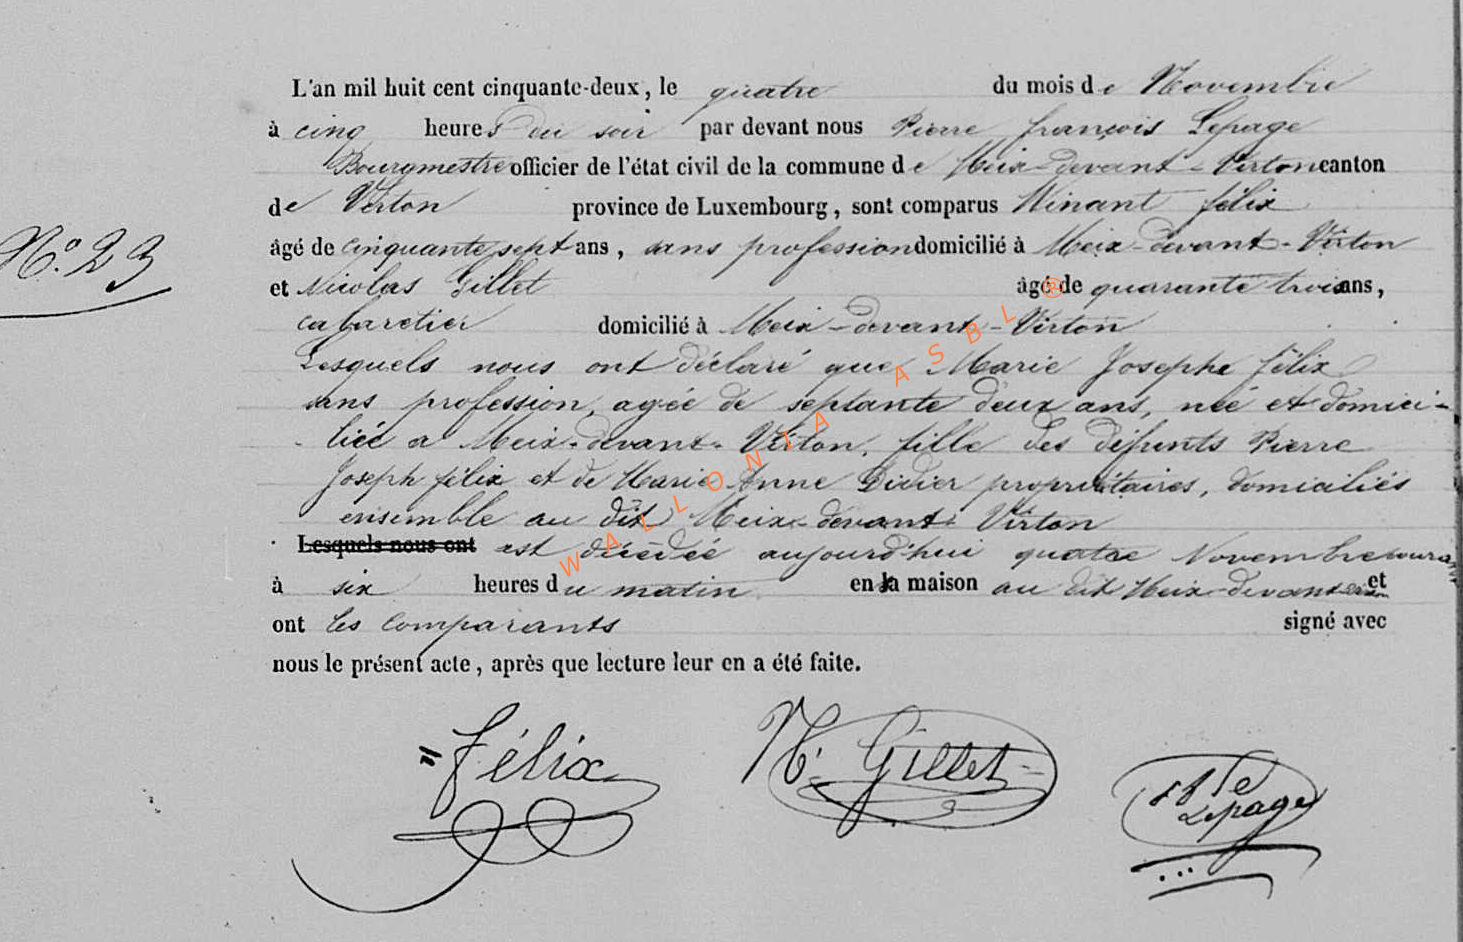 L'an mil huit cent cinquante-deux, le quatre du mois de Novembre
à cinq heures du soir par devant nous Pierre françois Lepage
Bourgmestre officier de l'état civil de la commune de Meix-devant-Virton canton
de Virton province de Luxembourg, sont comparus Winant félix
N.º 23
âgé de cinquante sept ans, sans profession domicilié à Meix-devant-Virton
et Nicolas Gillet âgé de quarante trois ans,
cabaretier domicilié à Meix-devant-Virton
Lesquels nous ont déclaré que Marie Josephe félix
sans profession, agée de septante deux ans, née et domici-
liée a Meix-devant-Virton, fille des défunts Pierre
Joseph félix et de Marie Anne Didier propriétaires, domiciliés
ensemble au dit Meix-devant-Virton
Lesquels nous ont est décédée aujourd'hui quatre Novembre courant
à six heures du matin en sa maison au dit Meix-devant-Virton et
ont les comparants signé avec
nous le présent acte, après que lecture leur en a été faite.
félix N. Gillet
Lepage
WALLONIA ASBL ®